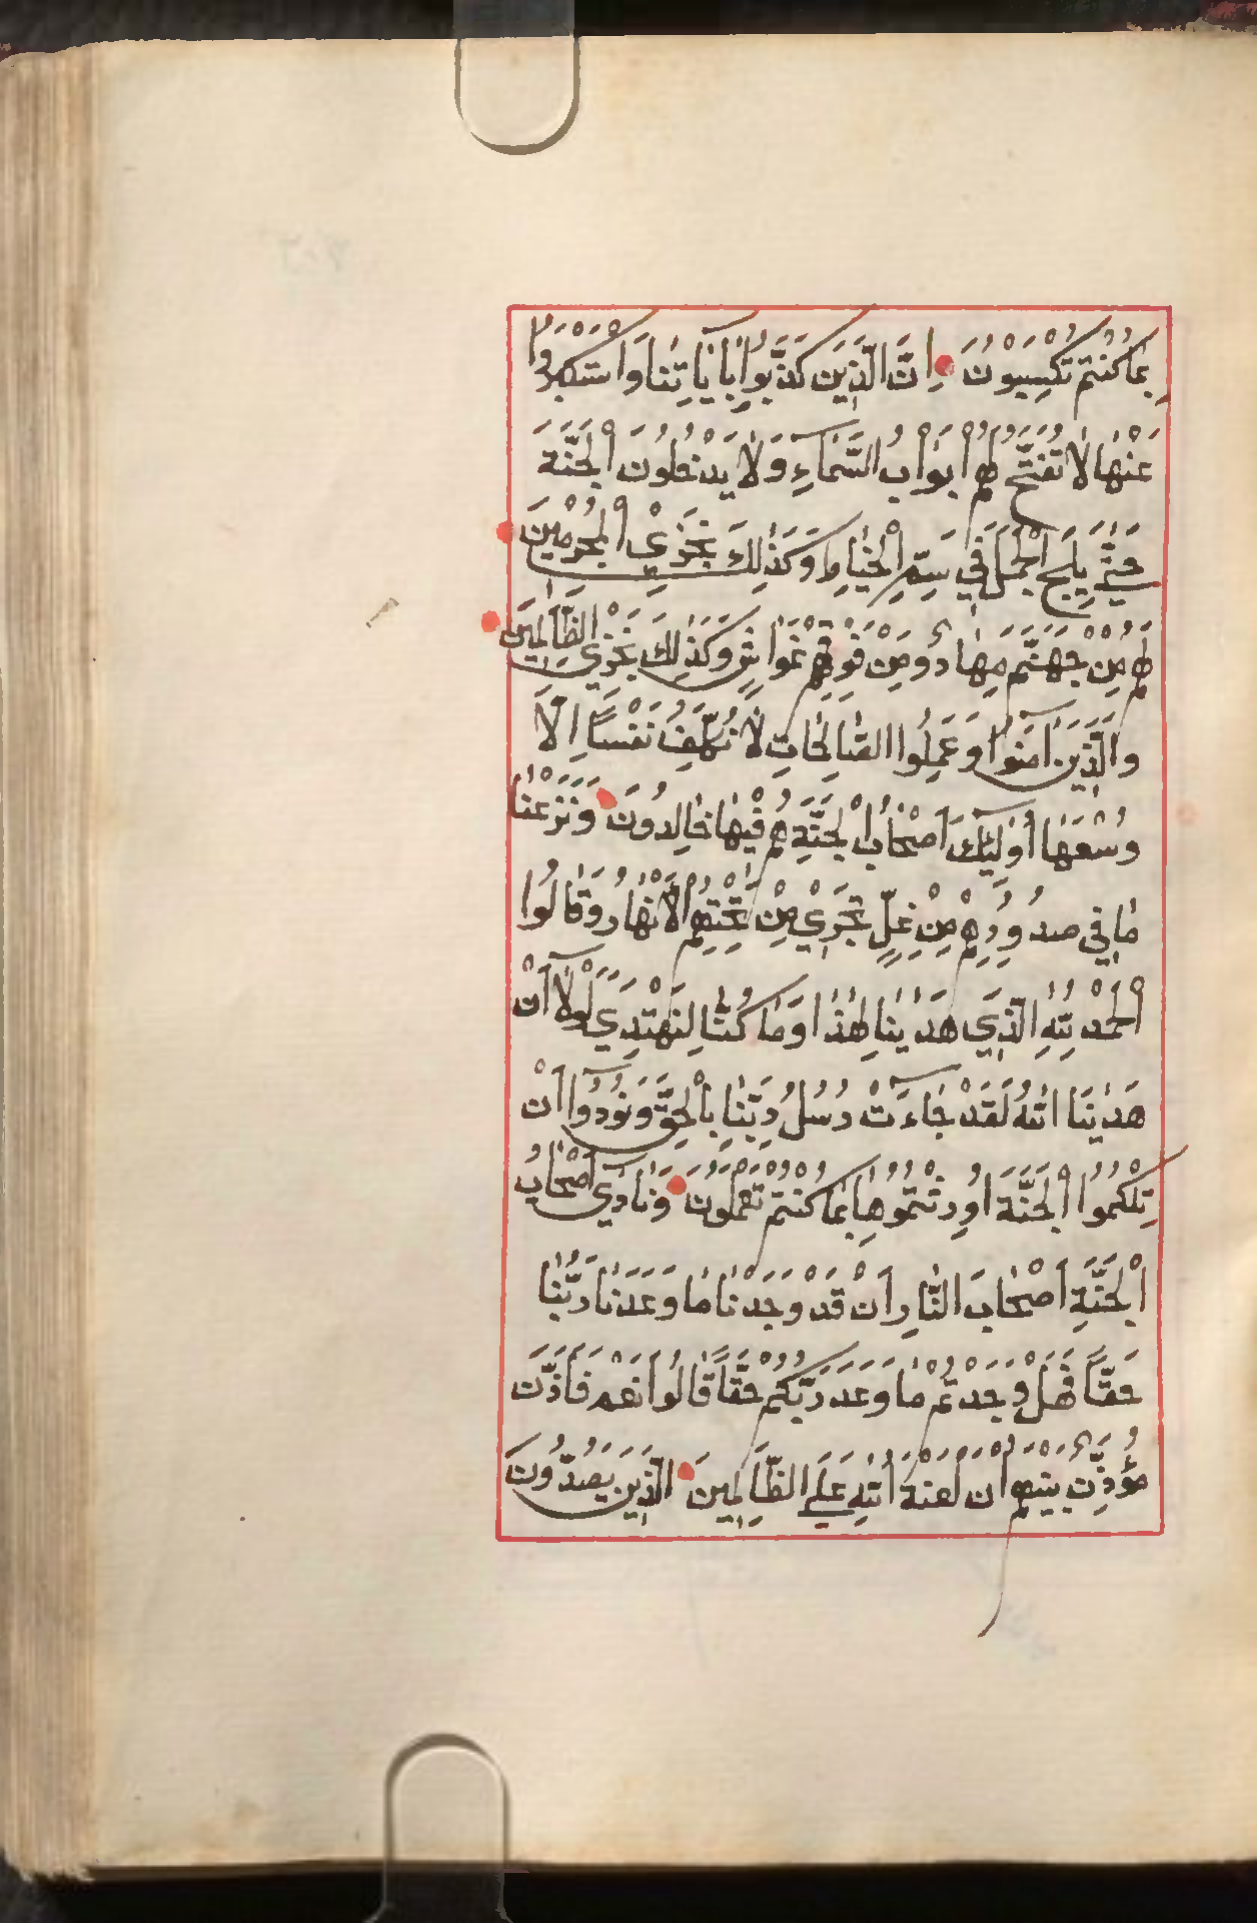 بِمَا كُنْتُمْ تَكْسِبُونَ اِنَّ الَّذِينَ كَذَّبُوا بِاٰيَاتِنَا وَاسْتَكْبَرُوا
عَنْهَا لَا تُفَتَّحُ لَهُمْ اَبْوَابُ السَّمَاءِ وَلَا يَدْخُلُونَ الْجَنَّةَ
حَتّٰى يَلِجَ الْجَمَلُ فِي سَمِّ الْخِيَاطِ وَكَذٰلِكَ نَجْزِي الْمُجْرِمِينَ
لَهُمْ مِنْ جَهَنَّمَ مِهَادٌ وَمِنْ فَوْقِهِمْ غَوَاشٍ وَكَذٰلِكَ نَجْزِي الظَّالِمِينَ
وَالَّذِينَ اٰمَنُوا وَعَمِلُوا الصَّالِحَاتِ لَا نُكَلِّفُ نَفْسًا اِلَّا
وُسْعَهَا اُولٰئِكَ اَصْحَابُ الْجَنَّةِ هُمْ فِيهَا خَالِدُونَ وَنَزَعْنَا
مَا فِي صُدُورِهِمْ مِنْ غِلٍّ تَجْرِي مِنْ تَحْتِهِمُ الْاَنْهَارُ وَقَالُوا
الْحَمْدُ لِلّٰهِ الَّذِي هَدٰينَا لِهٰذَا وَمَا كُنَّا لِنَهْتَدِيَ لَوْلَا اَنْ
هَدٰينَا اللّٰهُ لَقَدْ جَاءَتْ رُسُلُ رَبِّنَا بِالْحَقِّ وَنُودُوا اَنْ
تِلْكُمُوا الْجَنَّةَ اُورِثْتُمُوهَا بِمَا كُنْتُمْ تَعْمَلُونَ وَنَادٰى اَصْحَابُ
الْجَنَّةِ اَصْحَابَ النَّارِ اَنْ قَدْ وَجَدْنَا مَا وَعَدَنَا رَبُّنَا
حَقًّا فَهَلْ وَجَدْتُمْ مَا وَعَدَ رَبُّكُمْ حَقًّا قَالُوا نَعَمْ فَاَذَّنَ
مُؤَذِّنٌ بَيْنَهُمْ اَنْ لَعْنَةُ اللّٰهِ عَلَى الظَّالِمِينَ الَّذِينَ يَصُدُّونَ